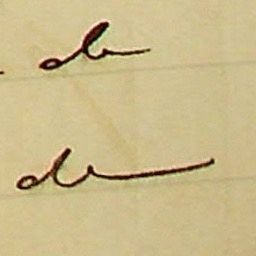 de
de